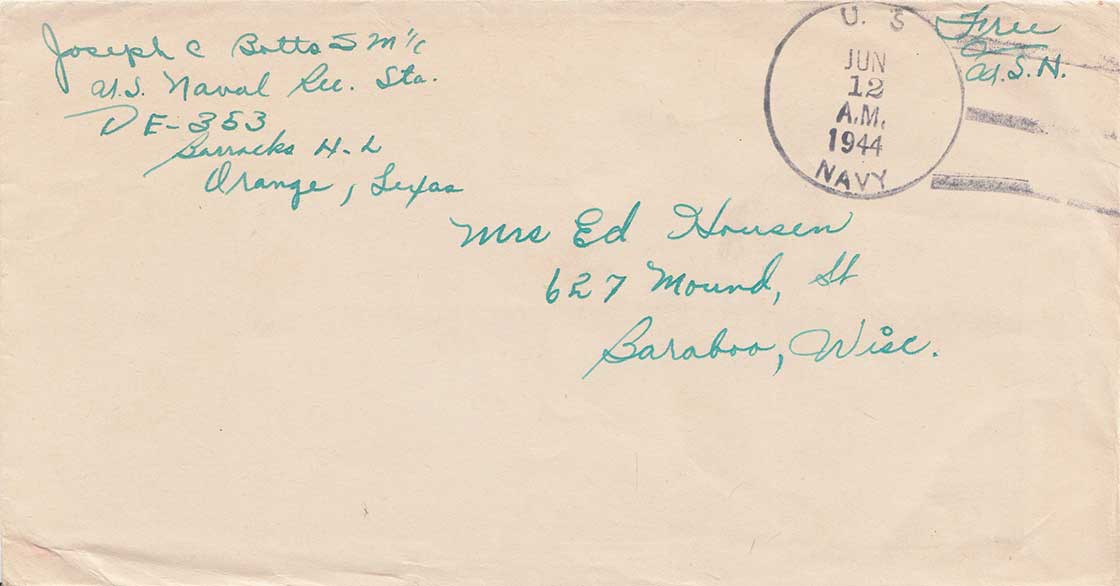 Joseph C Botts SM 1/c
U.S. Naval Rec. Sta.
DE-353
Barracks H-L
Orange, Texas
U. S
JUN
12
A.M.
1944
NAVY
Free
U.S.N.
Mrs Ed Housen
627 Mound, St
Baraboo, Wisc.